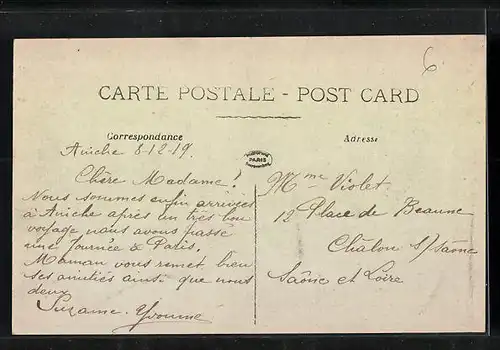 6
CARTE POSTALE - POST CARD
Correspondance
Adresse
PARIS
Aniche 8-12-19.
Chère Madame!
Nous sommes enfin arrivées
à Aniche après un très bon
voyage nous avons passé
une journée à Paris.
Maman vous remet bien
ses amitiés ainsi que nous
deux
Suzanne. Yvonne
Mme Violet
12 Place de Beaune
Châlon s/saône
Saône et Loire